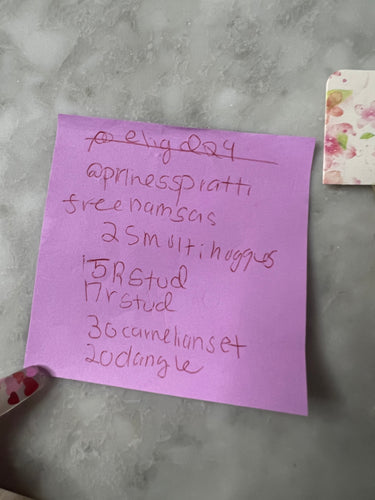 @prinesspratti
freedamsas
25multihoggus
15Rstud
17rstud
30carnelianset
20dangle